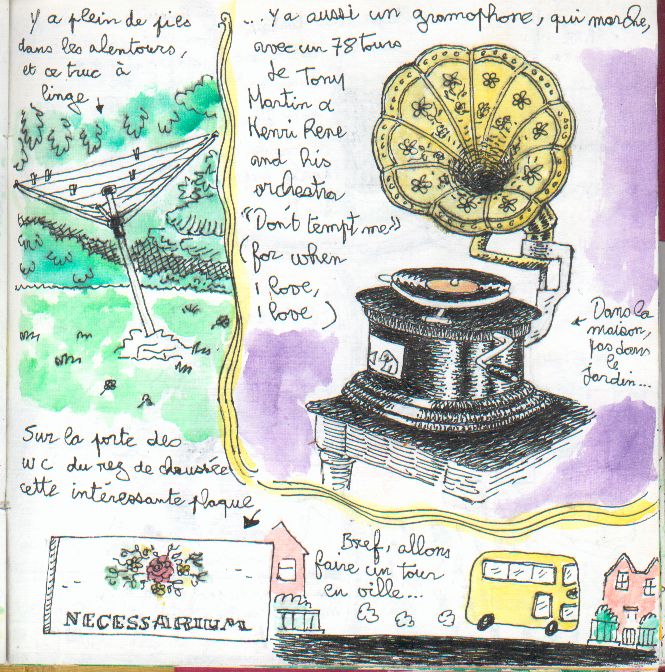 Y a plein de pies
dans les alentours,
et ce truc à
linge
... Y a aussi un gramophone, qui marche,
avec un 78 tours
de Tony
Martin &
Henri Rene
and his
orchestra
"Don't tempt me"
(for when
I love,
I love)
Dans la
maison,
pas dans
le
jardin...
Sur la porte des
WC du rez de chaussée
cette intéressante plaque
NECESSARIUM
Bref, allons
faire un tour
en ville...